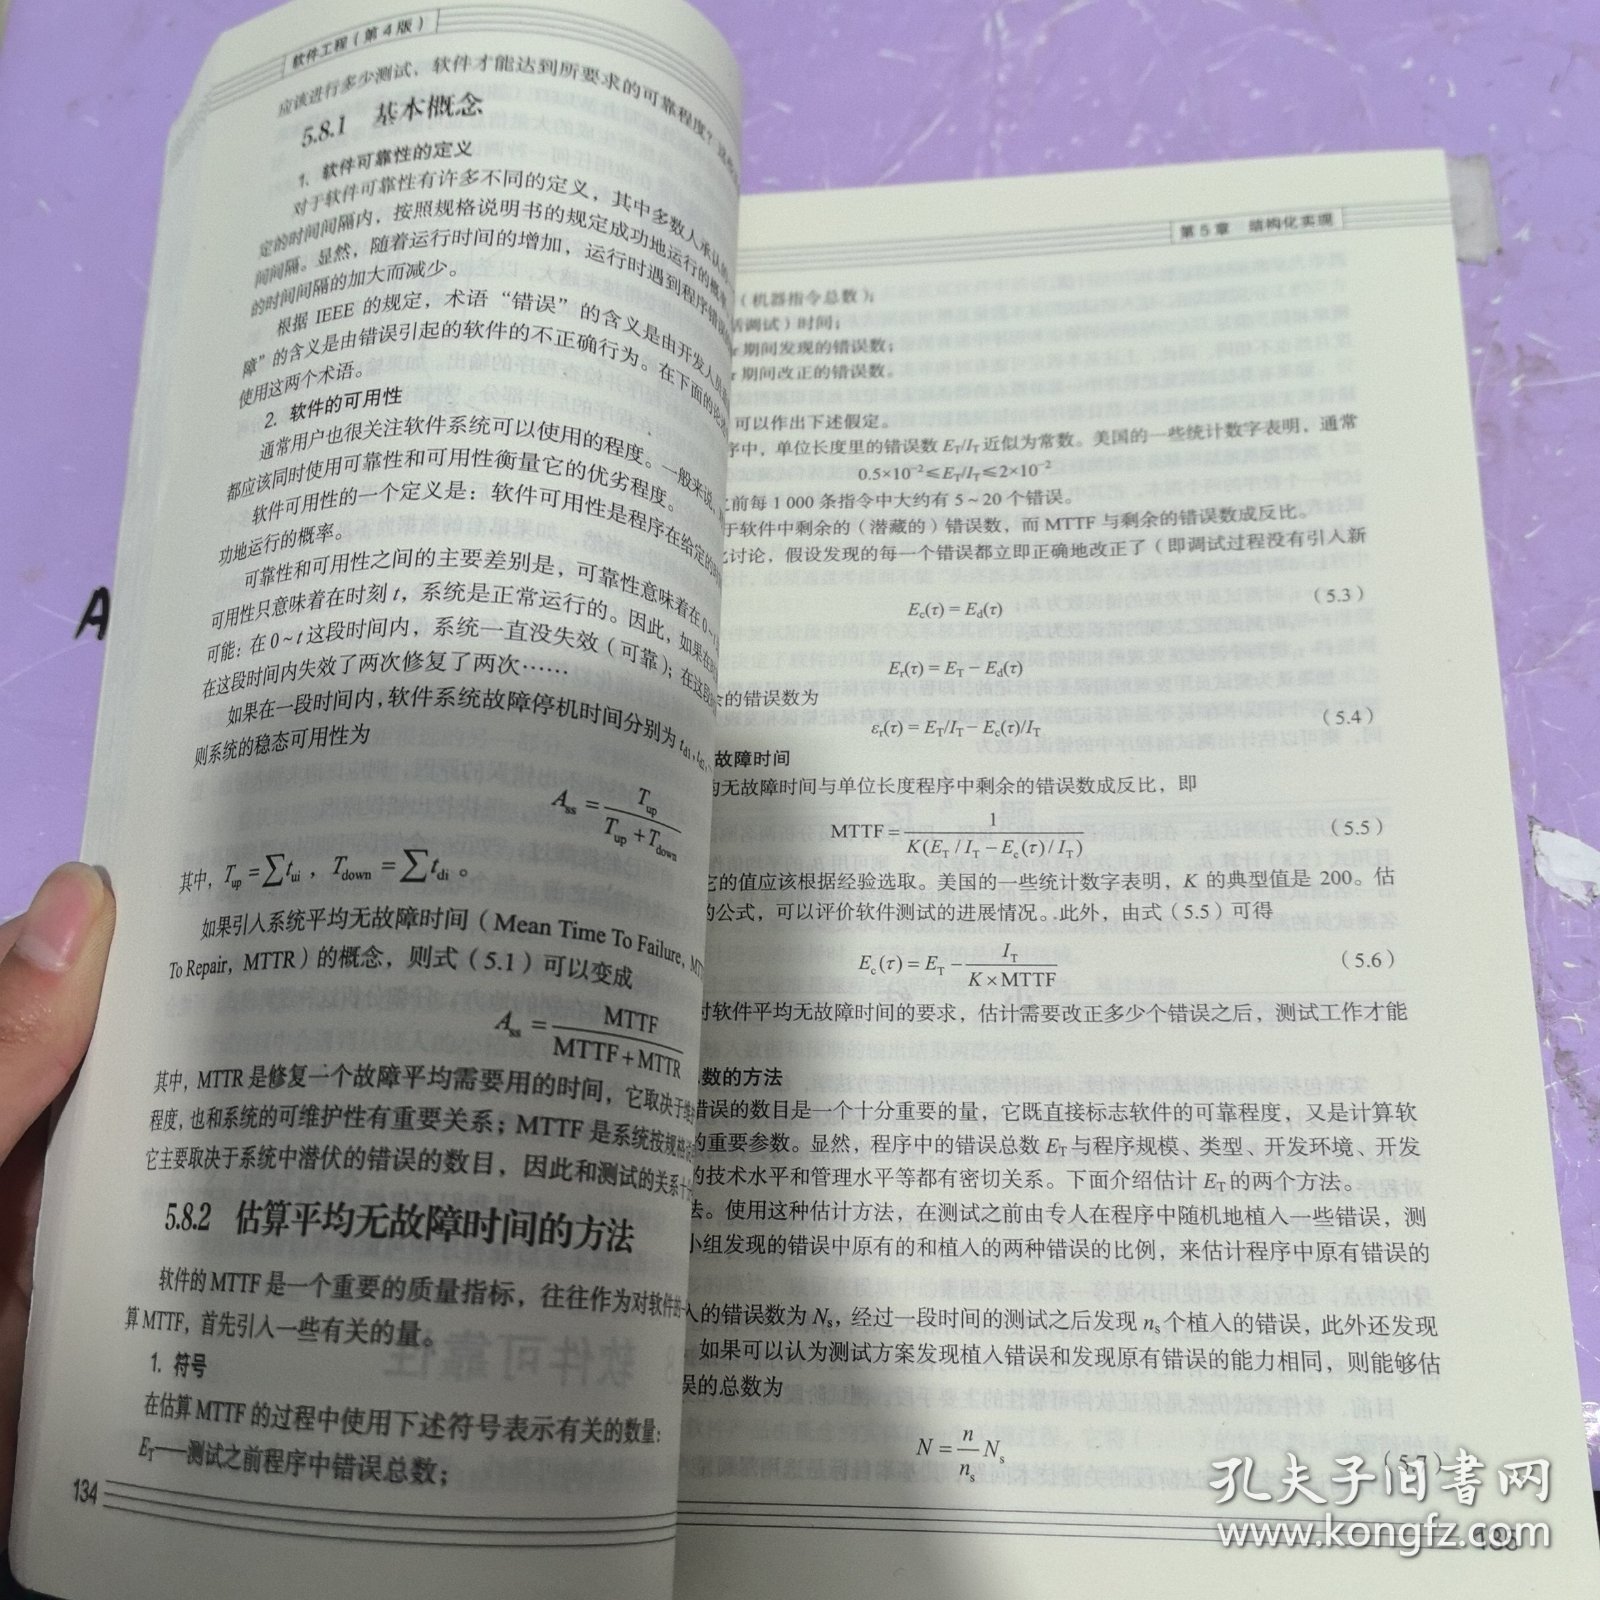 软件工程（第4版）
应该进行多少测试，软件才能达到所要求的可靠程度？
5.8.1 基本概念
1. 软件可靠性的定义
对于软件可靠性有许多不同的定义，其中多数人承认的
定的时间间隔内，按照规格说明书的规定成功地运行的概率
间间隔。显然，随着运行时间的增加，运行时遇到程序错误
的时间间隔的加大而减少。
根据 IEEE 的规定，术语“错误”的含义是由开发人员
障”的含义是由错误引起的软件的不正确行为。在下面的论
使用这两个术语。
2. 软件的可用性
通常用户也很关注软件系统可以使用的程度。一般来说，
都应该同时使用可靠性和可用性衡量它的优劣程度。
软件可用性的一个定义是：软件可用性是程序在给定的
功地运行的概率。
可靠性和可用性之间的主要差别是，可靠性意味着在 0~
可用性只意味着在时刻 t，系统是正常运行的。因此，如果在
可能：在 0~t 这段时间内，系统一直没失效（可靠）；在这段
在这段时间内失效了两次修复了两次……
如果在一段时间内，软件系统故障停机时间分别为 td1，td2，
则系统的稳态可用性为
Ass = Tup / (Tup + Tdown)
其中，Tup = ∑tui，Tdown = ∑tdi。
如果引入系统平均无故障时间（Mean Time To Failure，
To Repair，MTTR）的概念，则式（5.1）可以变成
Ass = MTTF / (MTTF + MTTR)
其中，MTTR 是修复一个故障平均需要用的时间，它取决于
程度，也和系统的可维护性有重要关系；MTTF 是系统按规格
它主要取决于系统中潜伏的错误的数目，因此和测试的关系十
5.8.2 估算平均无故障时间的方法
软件的 MTTF 是一个重要的质量指标，往往作为对软件的一
算 MTTF，首先引入一些有关的量。
1. 符号
在估算 MTTF 的过程中使用下述符号表示有关的数量：
ET——测试之前程序中错误总数；
134
第5章 结构化实现
（机器指令总数）；
调试）时间；
期间发现的错误数；
期间改正的错误数。
可以作出下述假定。
序中，单位长度里的错误数 ET/IT 近似为常数。美国的一些统计数字表明，通常
0.5×10⁻²≤ET/IT≤2×10⁻²
之前每 1 000 条指令中大约有 5～20 个错误。
于软件中剩余的（潜藏的）错误数，而 MTTF 与剩余的错误数成反比。
讨论，假设发现的每一个错误都立即正确地改正了（即调试过程没有引入新
Ec(τ) = Ed(τ) （5.3）
Er(τ) = ET − Ed(τ)
余的错误数为
εr(τ) = ET/IT − Ec(τ)/IT （5.4）
故障时间
均无故障时间与单位长度程序中剩余的错误数成反比，即
MTTF = 1 / K(ET/IT − Ec(τ)/IT) （5.5）
它的值应该根据经验选取。美国的一些统计数字表明，K 的典型值是 200。估
的公式，可以评价软件测试的进展情况。此外，由式（5.5）可得
Ec(τ) = ET − IT / (K×MTTF) （5.6）
对软件平均无故障时间的要求，估计需要改正多少个错误之后，测试工作才能
数的方法
错误的数目是一个十分重要的量，它既直接标志软件的可靠程度，又是计算软
的重要参数。显然，程序中的错误总数 ET 与程序规模、类型、开发环境、开发
的技术水平和管理水平等都有密切关系。下面介绍估计 ET 的两个方法。
法。使用这种估计方法，在测试之前由专人在程序中随机地植入一些错误，测
小组发现的错误中原有的和植入的两种错误的比例，来估计程序中原有错误的
入的错误数为 Ns，经过一段时间的测试之后发现 ns 个植入的错误，此外还发现
如果可以认为测试方案发现植入错误和发现原有错误的能力相同，则能够估
误的总数为
N = n/ns Ns （5.7）
135
孔夫子旧书网
www.kongfz.com
A